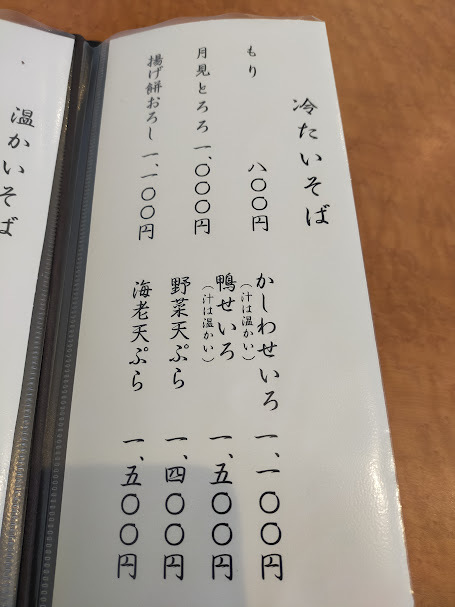 冷たいそば
もり 八〇〇円
月見とろろ 一、〇〇〇円
揚げ餅おろし 一、一〇〇円
かしわせいろ 一、一〇〇円
(汁は温かい)
鴨せいろ 一、五〇〇円
(汁は温かい)
野菜天ぷら 一、四〇〇円
海老天ぷら 一、五〇〇円
温かいそば